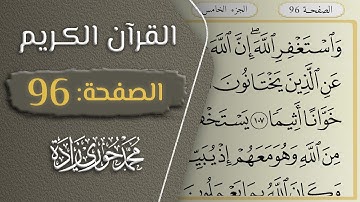 القرآن الكريم
الصفحة: 96
محمد حوري زادة
الصفحة 96
الجزء الخامس
وَاسْتَغْفِرِ اللَّهَ ۖ إِنَّ اللَّهَ
عَنِ الَّذِينَ يَخْتَانُونَ
خَوَّانًا أَثِيمًا ١٠٧ يَسْتَخْفُ
مِنَ اللَّهِ وَهُوَ مَعَهُمْ إِذْ يُبَيِّ
وَكَانَ اللَّهُ بِمَا يَعْمَلُونَ